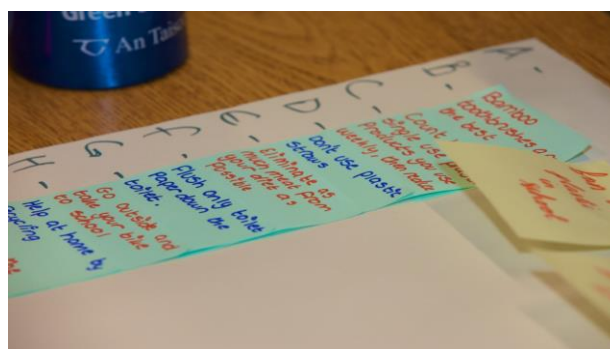 Green
An Tais
A -
B -
C -
D -
E -
F -
G -
H -
Bamboo
toothbrushes
are best
Count
single use
products you use
weekly, and
Don't use plastic
straws
Eliminate as
much meat from
your diet as
possible
Flush only toilet
Paper down the
toilet.
Go outside and
your bike
to school
Help at home by
the
in
School